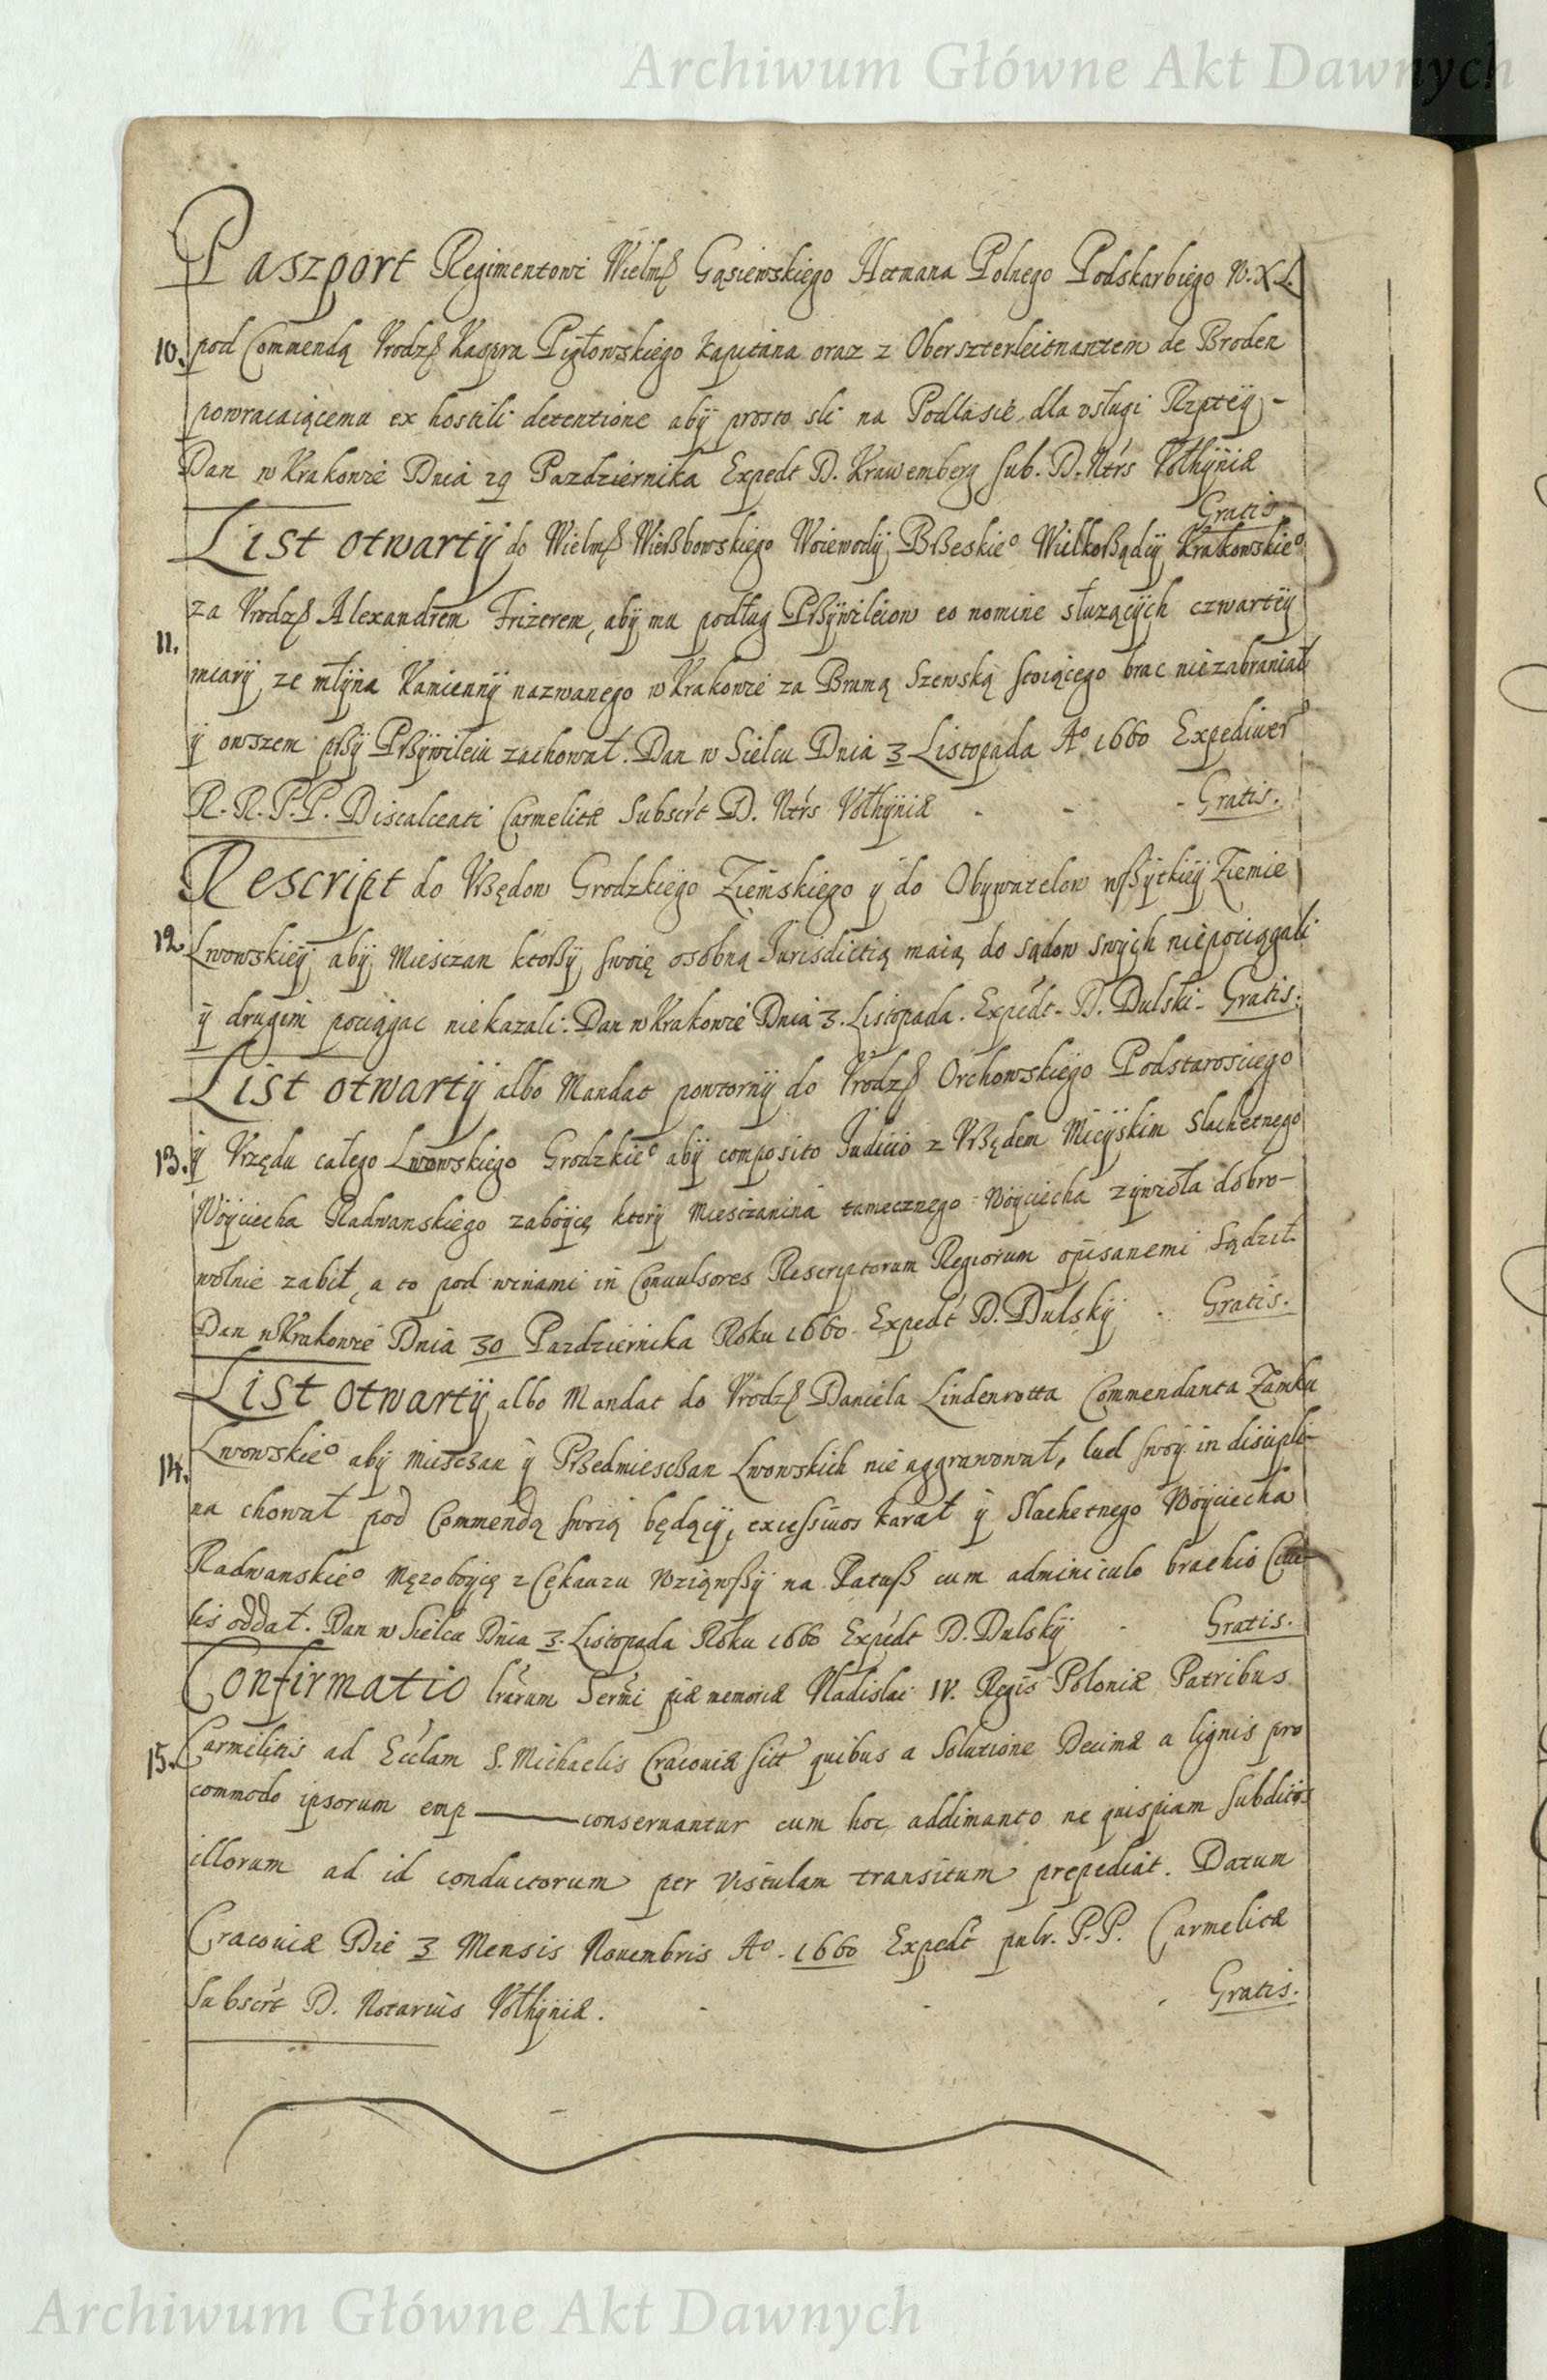 Archiwum Główne Akt Dawnych
Paszport Regimentowi Wielmß Gąsiewskiego Hetmana Polnego Podskarbiego W.X.L.
10. pod Commendą Vrodzß Kaspra Pigłowskiego Kapitana oraz z Oberszterleitnantem de Broden
powracaiącemu ex hostili detentione aby prosto sli na Podlasie, dla vsługi Rzptey -
Dan w Krakowie Dnia 29 Pazdziernika Expedt D. Krawemberg sub. D. Ntrs Vołhyniæ
Gratis
List otwarty do Wielmß Wierßbowskiego Woiewody Brßeskie° Wielkorßądcy Krakowskie°
11. za Vrodzß Alexandrem Frizerem, aby mu podług Prßywileiow eo nomine służących czwartey
miary ze młyna Kamienny nazwanego w Krakowie za Bramą Szewską stoiącego brac niezabraniał
y owszem prßy Prßywileiu zachował. Dan w Sielcu Dnia 3 Listopada A° 1660 Expediuer
R. R. P. P. Discalceati Carmelitæ Subscrt D. Ntrs Vołhyniæ - - - Gratis.
Rescript do Vrßędow Grodzkiego Ziemskiego y do Obywatelow wßytkiey Ziemie
12. Lwowskiey aby Miesczan ktorßy swoię osobną Jurisdictią maią do sądow swych niepociągali
y drugim pociągac niekazali. Dan w Krakowie Dnia 3. Listopada. Expedt. D. Dulski - Gratis.
List otwarty albo Mandat powtorny do Vrodzß Orchowskiego Podstarosciego
13. y Vrzędu całego Lwowskiego Grodzkie° aby composito Judicio z Vrßędem Mieyskim Slachetnego
Woyciecha Radwanskiego zaboycę ktory Miesczanina tamecznego Woyciecha zywioła dobro-
wolnie zabił, a to pod winami in Conuulsores Rescriptorum Regiorum opisanemi sądził
Dan w Krakowie Dnia 30 Pazdziernika Roku 1660. Expedt D. Dulsky . Gratis.
List otwarty albo Mandat do Vrodzß Daniela Lindenrotta Commendanta Zamku
14. Lwowskie° aby miescßan y Prßedmiescßan Lwowskich nie aggrawował, lud swoy in discipli-
na chował pod Commendą swoią będący, excessiuos karał y Slachetnego Woyciecha
Radwanskie° Męzoboycę z Cekauzu wziąwßy na Ratuß cum adminiculo brachio Ciui-
lis oddał. Dan w Sielcu Dnia 3. Listopada Roku 1660 Expedt D. Dulsky . Gratis.
Confirmatio lrarum Sermi piæ memoriæ Vladislai IV. Regis Poloniæ Patribus
15. Carmelitis ad Ecclam S. Michaelis Cracouiæ sitt quibus a Solutione Decimæ a lignis pro
commodo ipsorum emp—— conseruantur cum hoc addimanto ne quispiam subditos
illorum ad id conductorum per Vistulam transitum prepediat. Datum
Cracouiæ Die 3 Mensis Nouembris A°. 1660 Expedt pulr. P.P. Carmelitæ
Subscrt D. Notarius Vołhyniæ. - - . Gratis.
Archiwum Główne Akt Dawnych